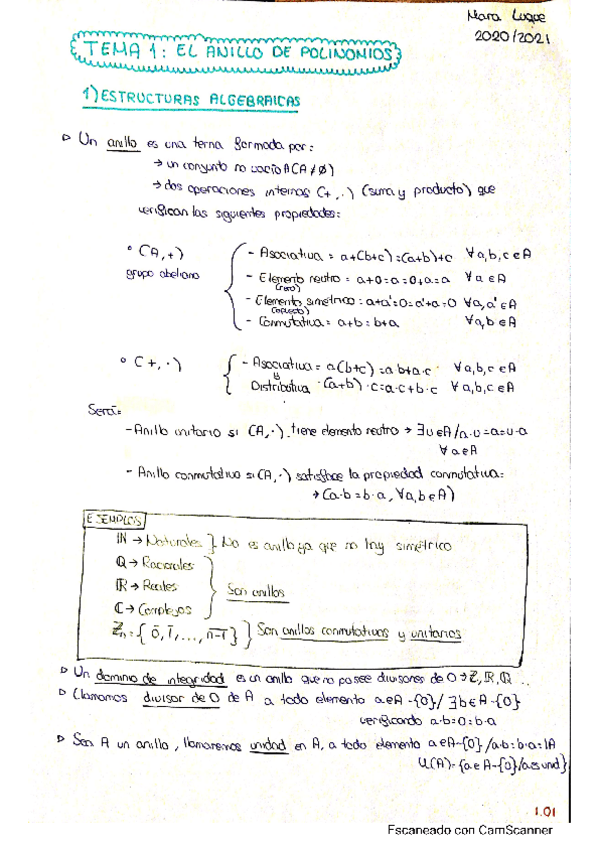 Mara Luque
2020/2021
TEMA 1: EL ANILLO DE POLINOMIOS
1) ESTRUCTURAS ALGEBRAICAS
▷ Un anillo es una terna formada por:
→ un conjunto no vacío A (A ≠ ∅)
→ dos operaciones internas (+, ·) (suma y producto) que
verifican las siguientes propiedades:
° (A, +)
grupo abeliano
- Asociativa = a+(b+c)=(a+b)+c ∀a,b,c∈A
- Elemento neutro = a+0=a=0+a=a ∀a∈A
(cero)
- Elemento simétrico = a+a'=0=a'+a=0 ∀a,a'∈A
(opuesto)
- Conmutativa = a+b=b+a ∀a,b∈A
° (+, ·)
- Asociativa = a(b+c)=a·b+a·c ∀a,b,c∈A
y
Distributiva (a+b)·c=a·c+b·c ∀a,b,c∈A
Será:
- Anillo unitario si (A, ·) tiene elemento neutro → ∃u∈A/a·u=a=u·a
∀a∈A
- Anillo conmutativo si (A, ·) satisface la propiedad conmutativa:
→ (a·b=b·a, ∀a,b∈A)
EJEMPLOS
ℕ → Naturales } No es anillo ya que no hay simétrico
ℚ → Racionales
ℝ → Reales
Son anillos
ℂ → Complejos
ℤn = {0̄, 1̄, ..., n-1} } Son anillos conmutativos y unitarios
▷ Un dominio de integridad es un anillo que no posee divisores de 0 → ℤ, ℝ, ℚ...
▷ Llamamos divisor de 0 de A a todo elemento a∈A-{0}/ ∃b∈A-{0}
verificando a·b=0=b·a
▷ Sea A un anillo, llamaremos unidad en A, a todo elemento a∈A-{0}/a·b=b·a=1A
U(A)={a∈A-{0}/a es und}
1.01
Escaneado con CamScanner